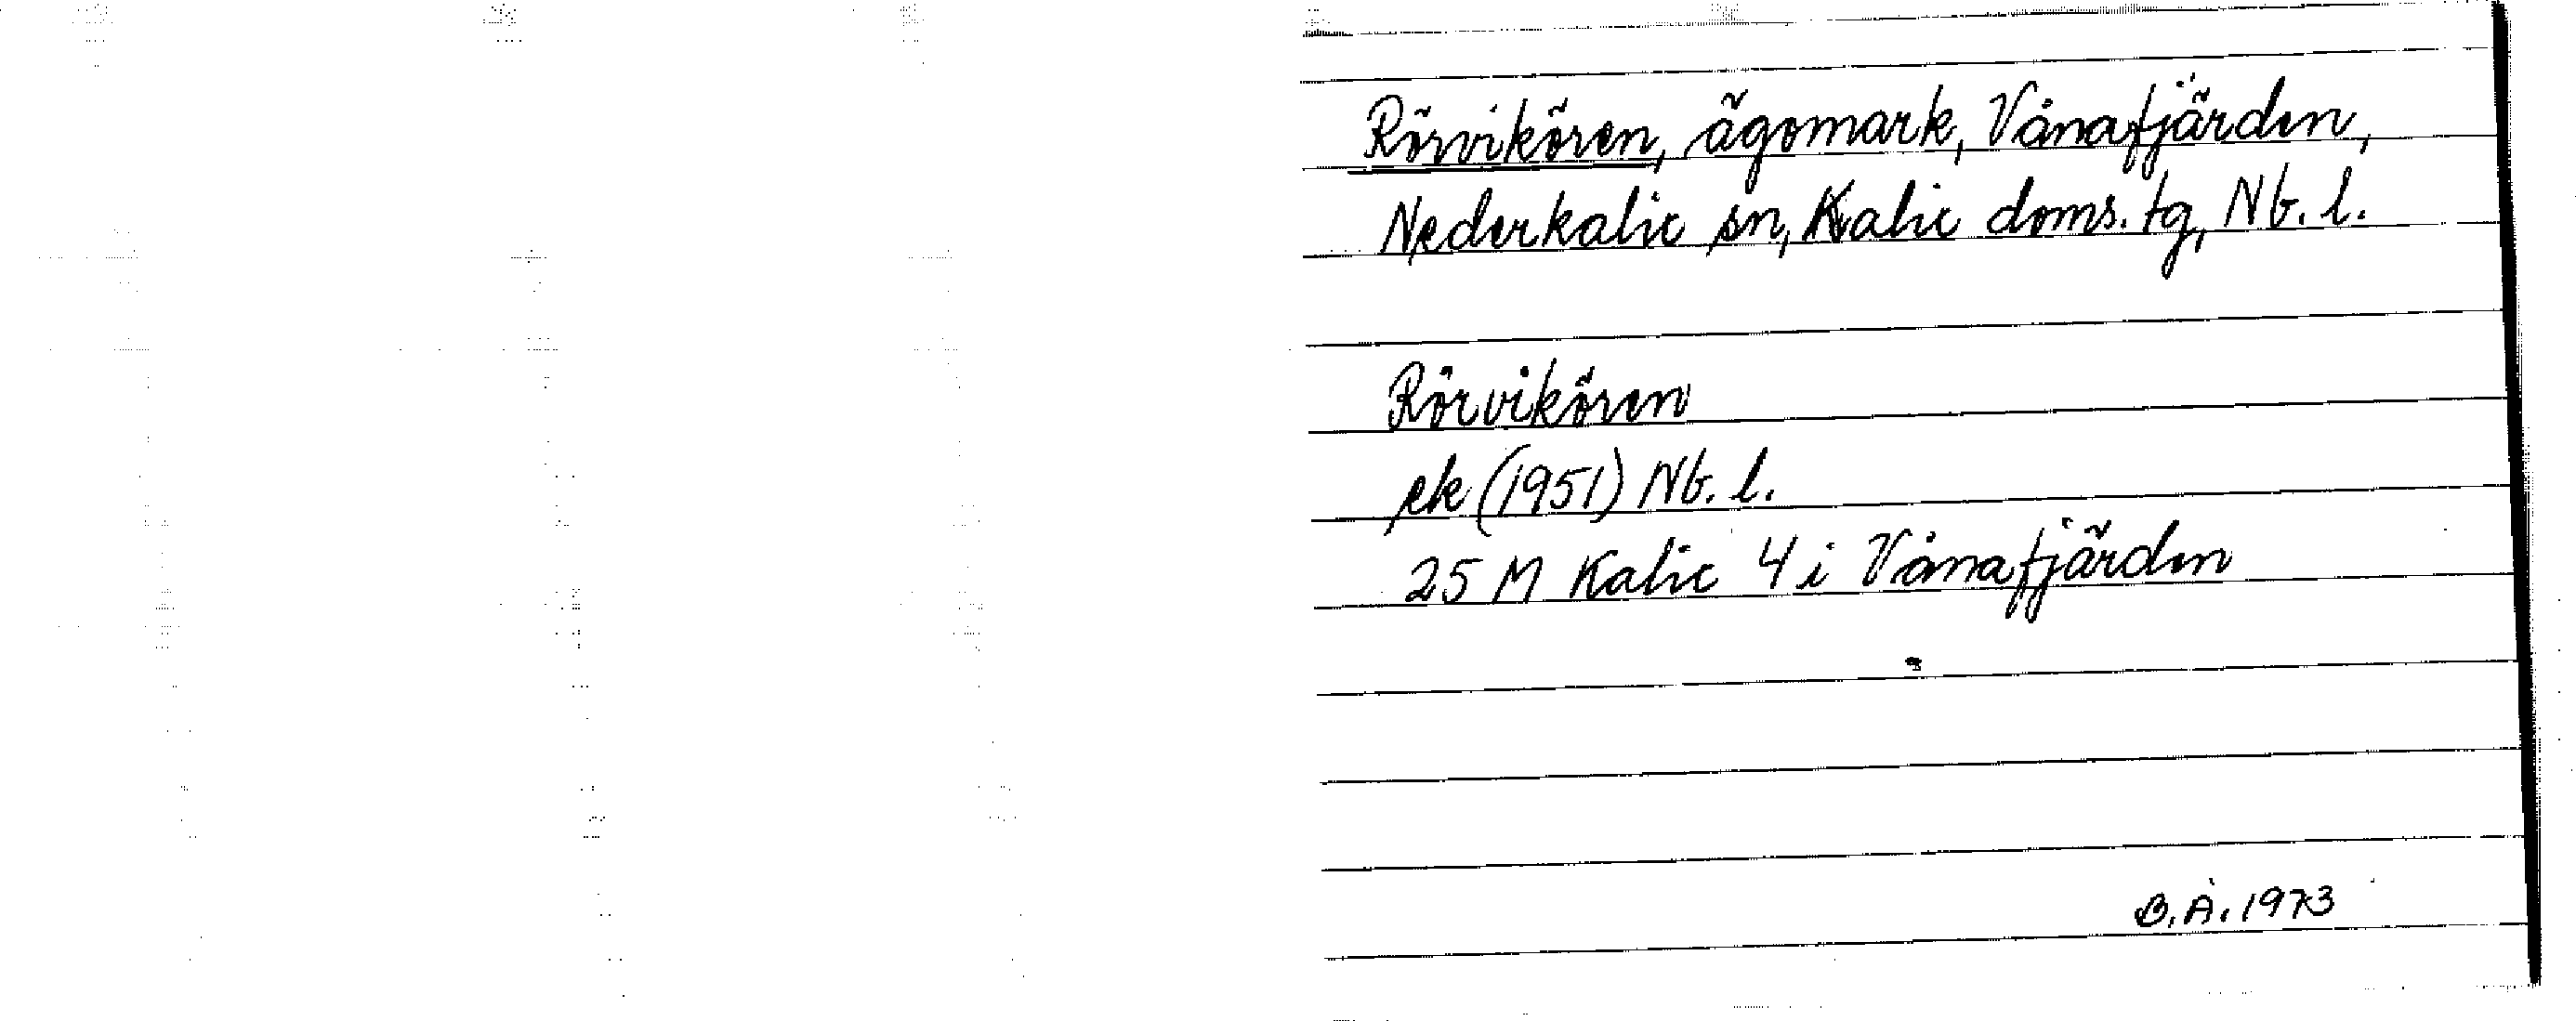 Rörvikören, ägomark, Vånafjärden,
Nederkalix sn, Kalix doms. tg, Nb. l.
Rörvikören
ek (1951) Nb. l.
25 M Kalix 4 i Vånafjärden
B. Å. 1973